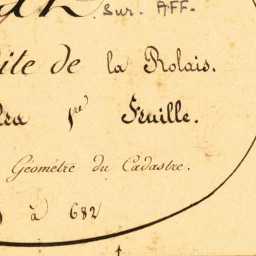 Sur. AFF.
ite de la Rolais.
1re Feuille.
Géomètre du Cadastre.
à 682